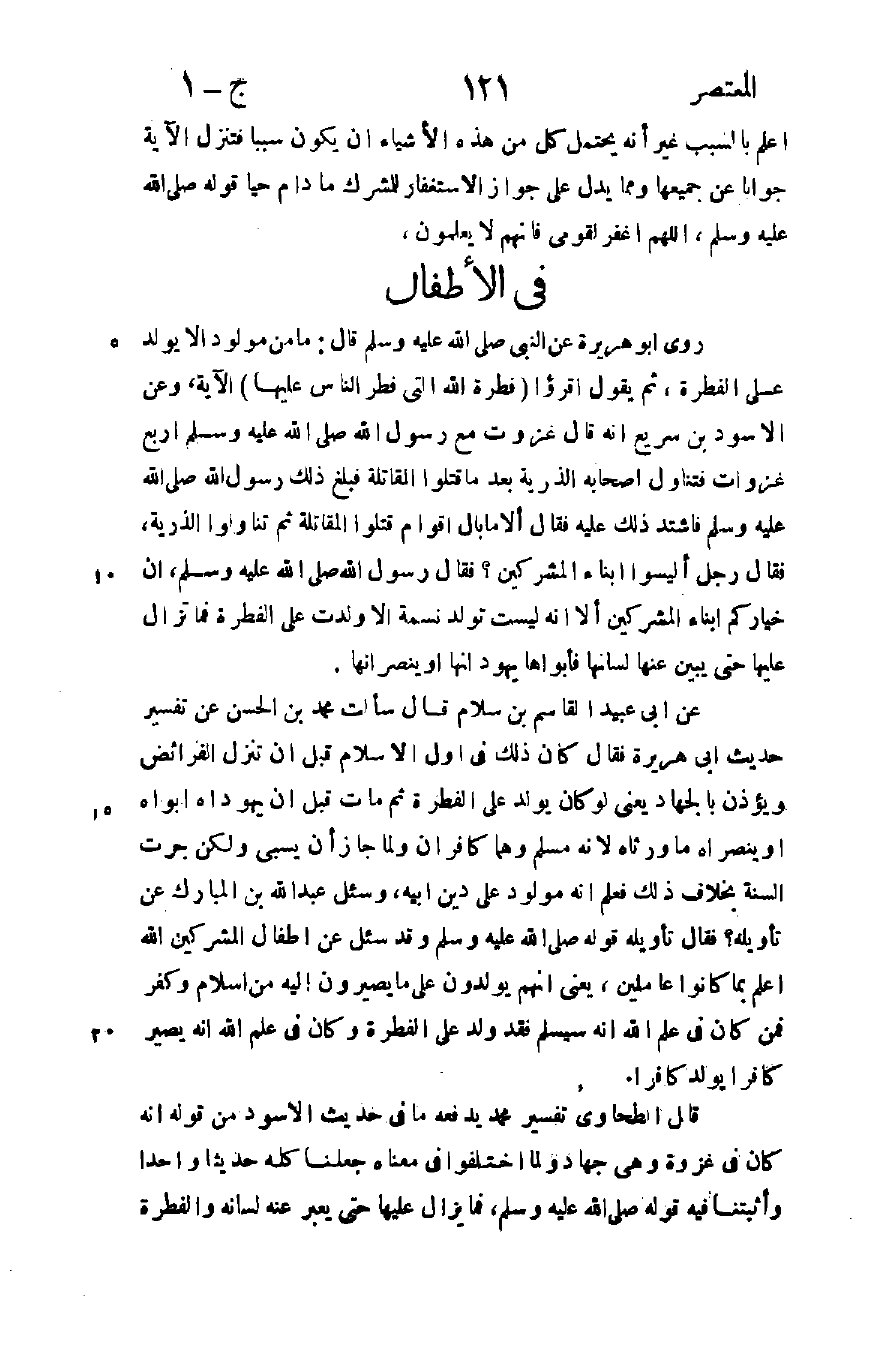 المعتصر ١٢١ ج - ١
اعلم بالسبب غير أنه يحتمل كل من هذه الأشياء ان يكون سببا فتنزل الآية
جوابا عن جميعها ومما يدل على جواز الاستغفار للشرك ما دام حيا قوله صلى الله
عليه وسلم ، اللهم اغفر لقومى فانهم لا يعلمون ،
فى الأطفال
روى ابو هريرة عن النبى صلى الله عليه وسلم قال : مامن مولود الا يولد ٥
على الفطرة ، ثم يقول اقرؤا ( فطرة الله التى فطر الناس عليها ) الآية، وعن
الاسود بن سريع انه قال غزوت مع رسول الله صلى الله عليه وسلم اربع
غزوات فتناول اصحابه الذرية بعد ماقتلوا المقاتلة فبلغ ذلك رسول الله صلى الله
عليه وسلم فاشتد ذلك عليه فقال ألا مابال اقوام قتلوا المقاتلة ثم تناولوا الذرية،
فقال رجل أليسوا ابناء المشركين ؟ فقال رسول الله صلى الله عليه وسلم، ان ١٠
خياركم ابناء المشركين ألا انه ليست تولد نسمة الا ولدت على الفطرة فما تزال
عليها حتى يبين عنها لسانها فأبواها يهودانها او ينصرانها .
عن ابى عبيد القاسم بن سلام قال سألت محمد بن الحسن عن تفسير
حديث ابى هريرة فقال كان ذلك فى اول الاسلام قبل ان تنزل الفرائض
ويؤذن بالجهاد يعنى لوكان يولد على الفطرة ثم مات قبل ان يهوداه ابواه ١٥
اوينصراه ماورثاه لانه مسلم وهما كافران ولما جاز أن يسبى ولكن جرت
السنة بخلاف ذلك فعلم انه مولود على دين ابيه، وسئل عبدالله بن المبارك عن
تأويله؟ فقال تأويله قوله صلى الله عليه وسلم وقد سئل عن اطفال المشركين الله
اعلم بما كانوا عاملين ، يعنى انهم يولدون على مايصيرون إليه من اسلام وكفر
فمن كان فى علم الله انه سيسلم فقد ولد على الفطرة وكان فى علم الله انه يصير ٢٠
كافرا يولد كافرا.
قال الطحاوى تفسير محمد يدفعه ما فى حديث الاسود من قوله انه
كان فى غزوة وهى جهاد ولما اختلفوا فى معناه جعلنا كله حديثا واحدا
وأثبتنا فيه قوله صلى الله عليه وسلم، فما يزال عليها حتى يعبر عنه لسانه والفطرة